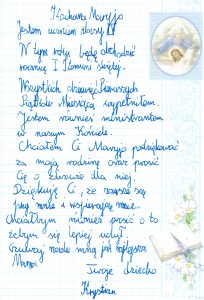 Kochana Maryjo
Jestem uczniem klasy II
W tym roku będę obchodzić
rocznicę I Komunii świętej.
Wszystkich dziewięć Pierwszych
Piątków Miesiąca wypełniłem.
Jestem również ministrantem
w naszym Kościele.
Chciałem Ci Maryjo podziękować
za moją rodzinę oraz prosić
Cię o zdrowie dla niej.
Dziękuję Ci, że zawsze są
przy mnie i wspierają mnie.
Chciałbym również prosić o to
żebym się lepiej uczył.
Czuwaj nade mną jak najlepsza
Mama
Twoje dziecko
Krystian